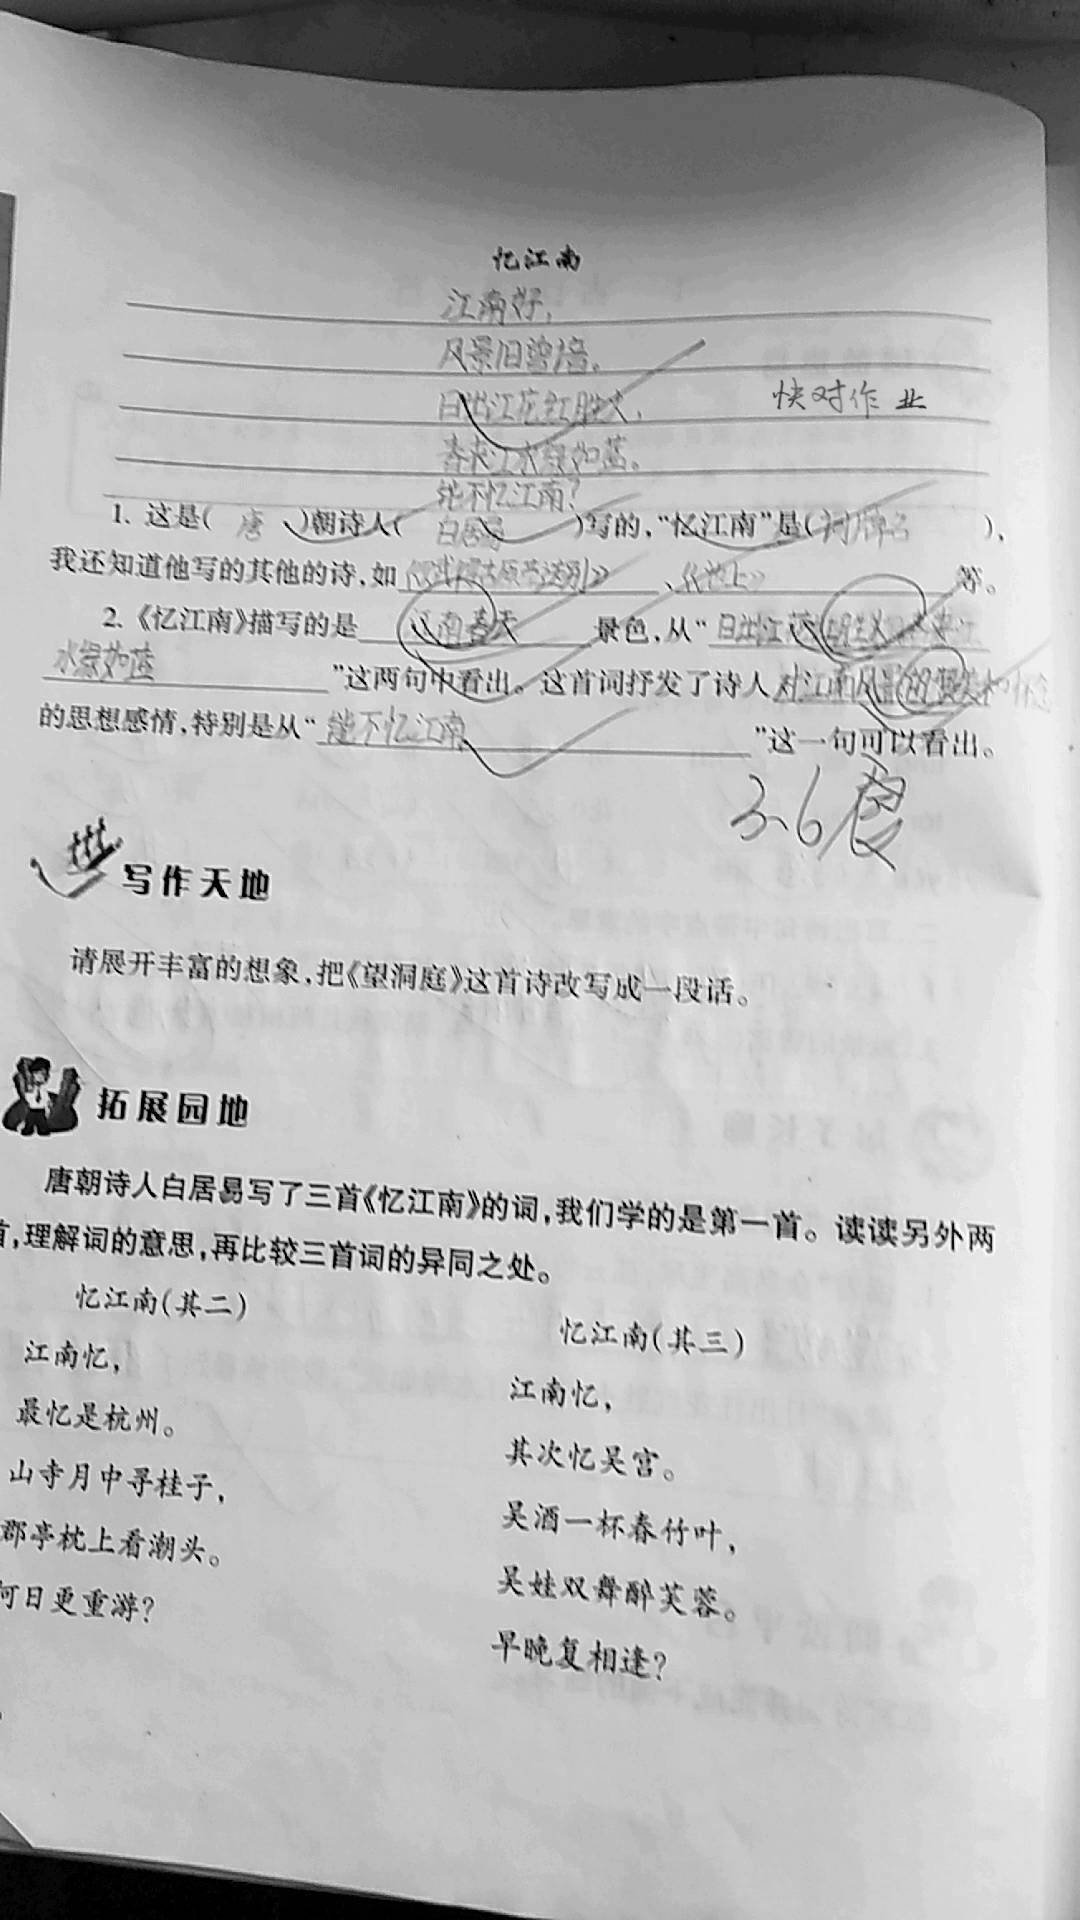 忆江南
江南好，
风景旧曾谙。
日出江花红胜火，
春来江水绿如蓝。
能不忆江南？
快对作业
1. 这是( 唐 )朝诗人( 白居易 )写的，“忆江南”是( 词牌名 )，
我还知道他写的其他的诗，如《赋得古原草送别》、《池上》等。
2.《忆江南》描写的是江南春天景色，从“日出江花红胜火 春来江
水绿如蓝”这两句中看出。这首词抒发了诗人对江南风景的赞美和怀念
的思想感情，特别是从“能不忆江南”这一句可以看出。
3.6
写作天地
请展开丰富的想象，把《望洞庭》这首诗改写成一段话。
拓展园地
唐朝诗人白居易写了三首《忆江南》的词，我们学的是第一首。读读另外两
首，理解词的意思，再比较三首词的异同之处。
忆江南(其二)
江南忆，
最忆是杭州。
山寺月中寻桂子，
郡亭枕上看潮头。
何日更重游？
忆江南(其三)
江南忆，
其次忆吴宫。
吴酒一杯春竹叶，
吴娃双舞醉芙蓉。
早晚复相逢？